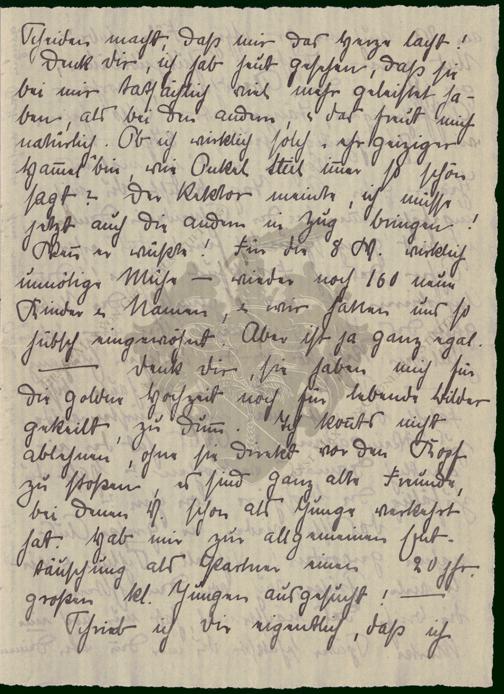 Scheiden macht, daß mir das Herze lacht!
Denk Dir, ich hab heut gesehen, daß sie
bei mir tatsächlich viel mehr geleistet ha-
ben, als bei den andern, u. das freut mich
natürlich. Ob ich wirklich solch "ehrgeiziger
Hammel" bin, wie Onkel immer so schön
sagt? Der Rektor meinte, ich müsse
jetzt auch die andern in Zug bringen!
Wenn er wüßte! Für die 8 W. wirklich
unnötige Mühe — wieder noch 160 neue
Kinder u. Namen, u. wir hatten uns so
hübsch eingewöhnt. Aber ist ja ganz egal.
— Denk Dir, sie haben mich für
die goldne Hochzeit noch für lebende Bilder
gekeilt, zu dumm. Ich konnts nicht
ablehnen, ohne sie direkt vor den Kopf
zu stoßen, es sind ganz alte Freunde,
bei denen V. schon als Junge verkehrt
hat. Hab mir zur allgemeinen Ent-
täuschung als Partner einen 20 jhr.
großen kl. Jungen ausgesucht! —
Schrieb ich Dir eigentlich, daß ich